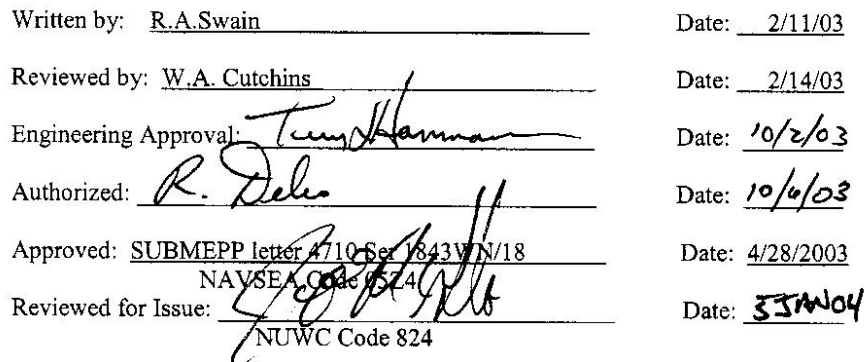 Written by: R.A.Swain Date: 2/11/03
Reviewed by: W.A. Cutchins Date: 2/14/03
Engineering Approval: Date: 10/2/03
Authorized: R. Date: 10/6/03
Approved: SUBMEPP letter 4710 Ser 1843WN/18 Date: 4/28/2003
NAVSEA Code 05Z4
Reviewed for Issue: Date: 5JAN04
NUWC Code 824